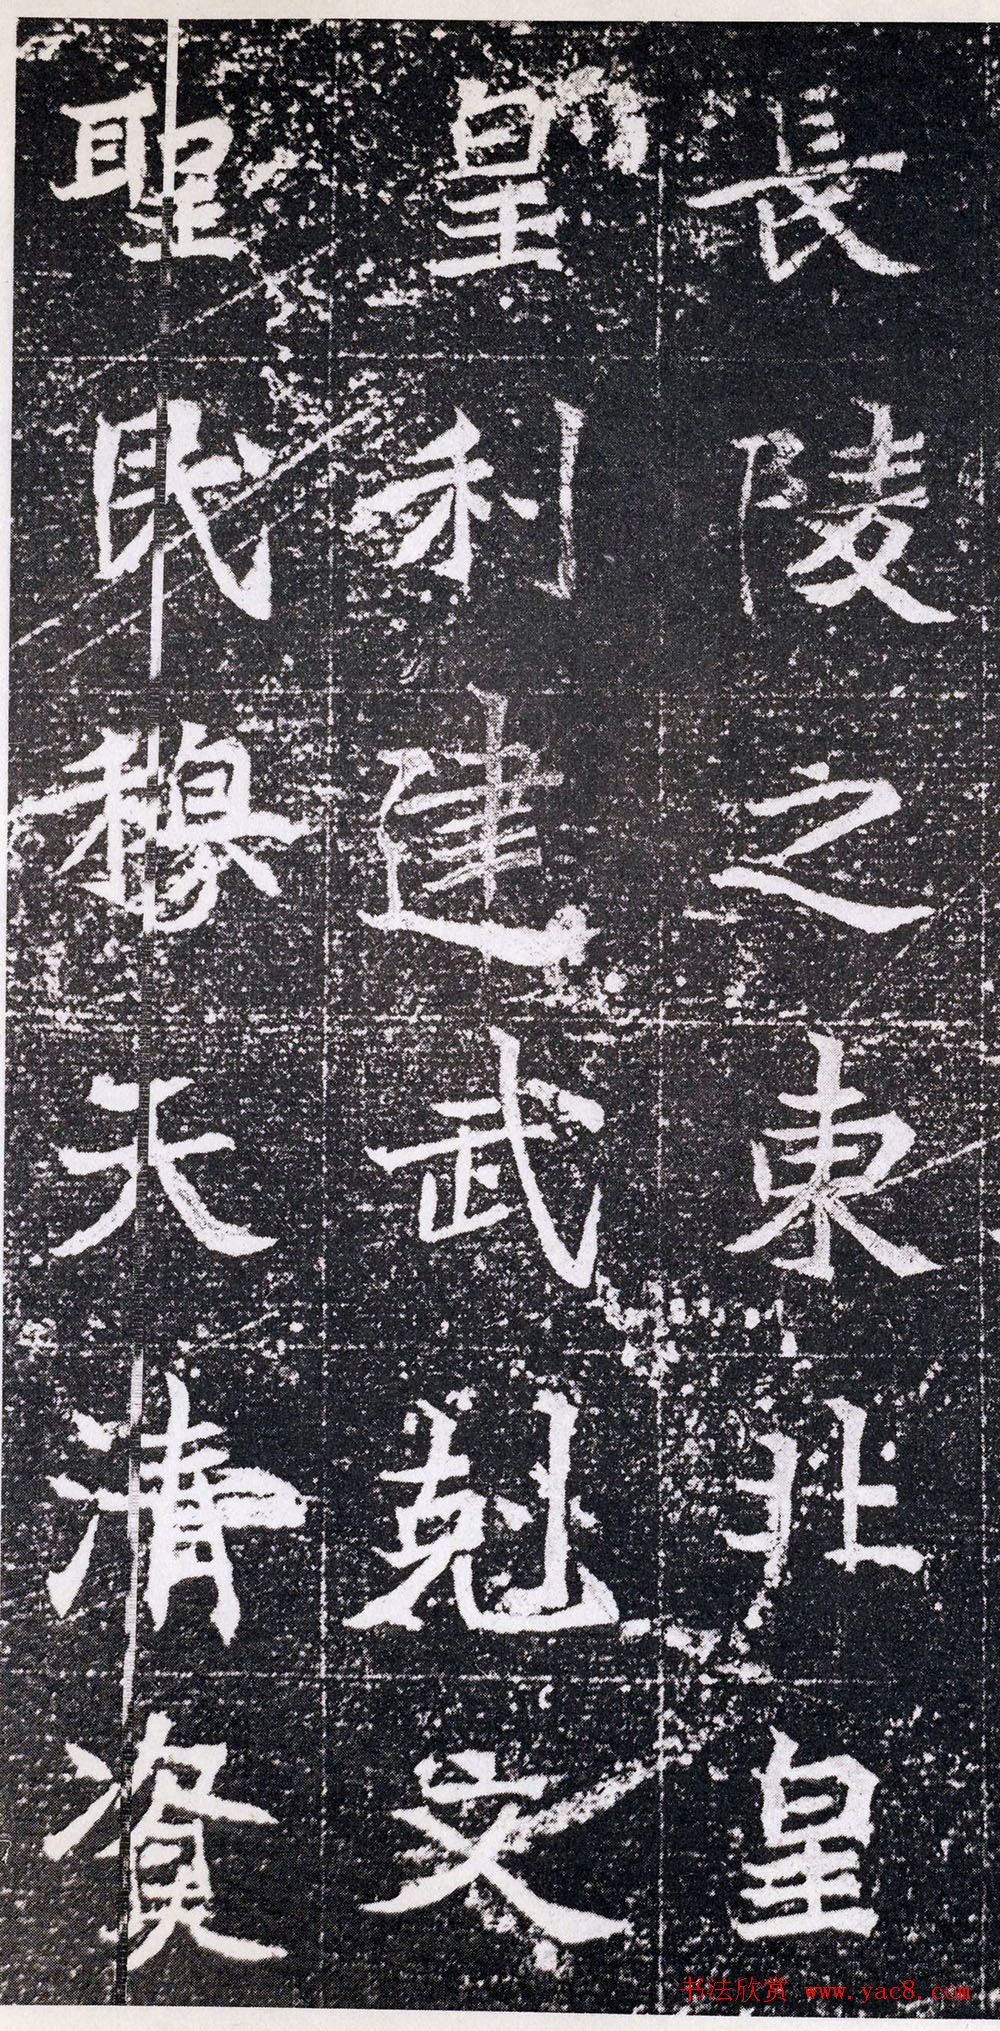 長陵之東北皇
皇利建武剋文
聖民穆天清資
书法欣赏 www.yac8.com